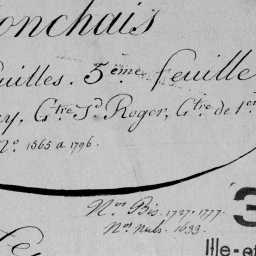 onchais
uilles. 5ème feuille
y, Gtre Jd Roger, Gtre de 1er
No 1565 a 1796.
Nos Bis. 1727. 1777.
Nos Nuls. 1633.
3
Ille-et